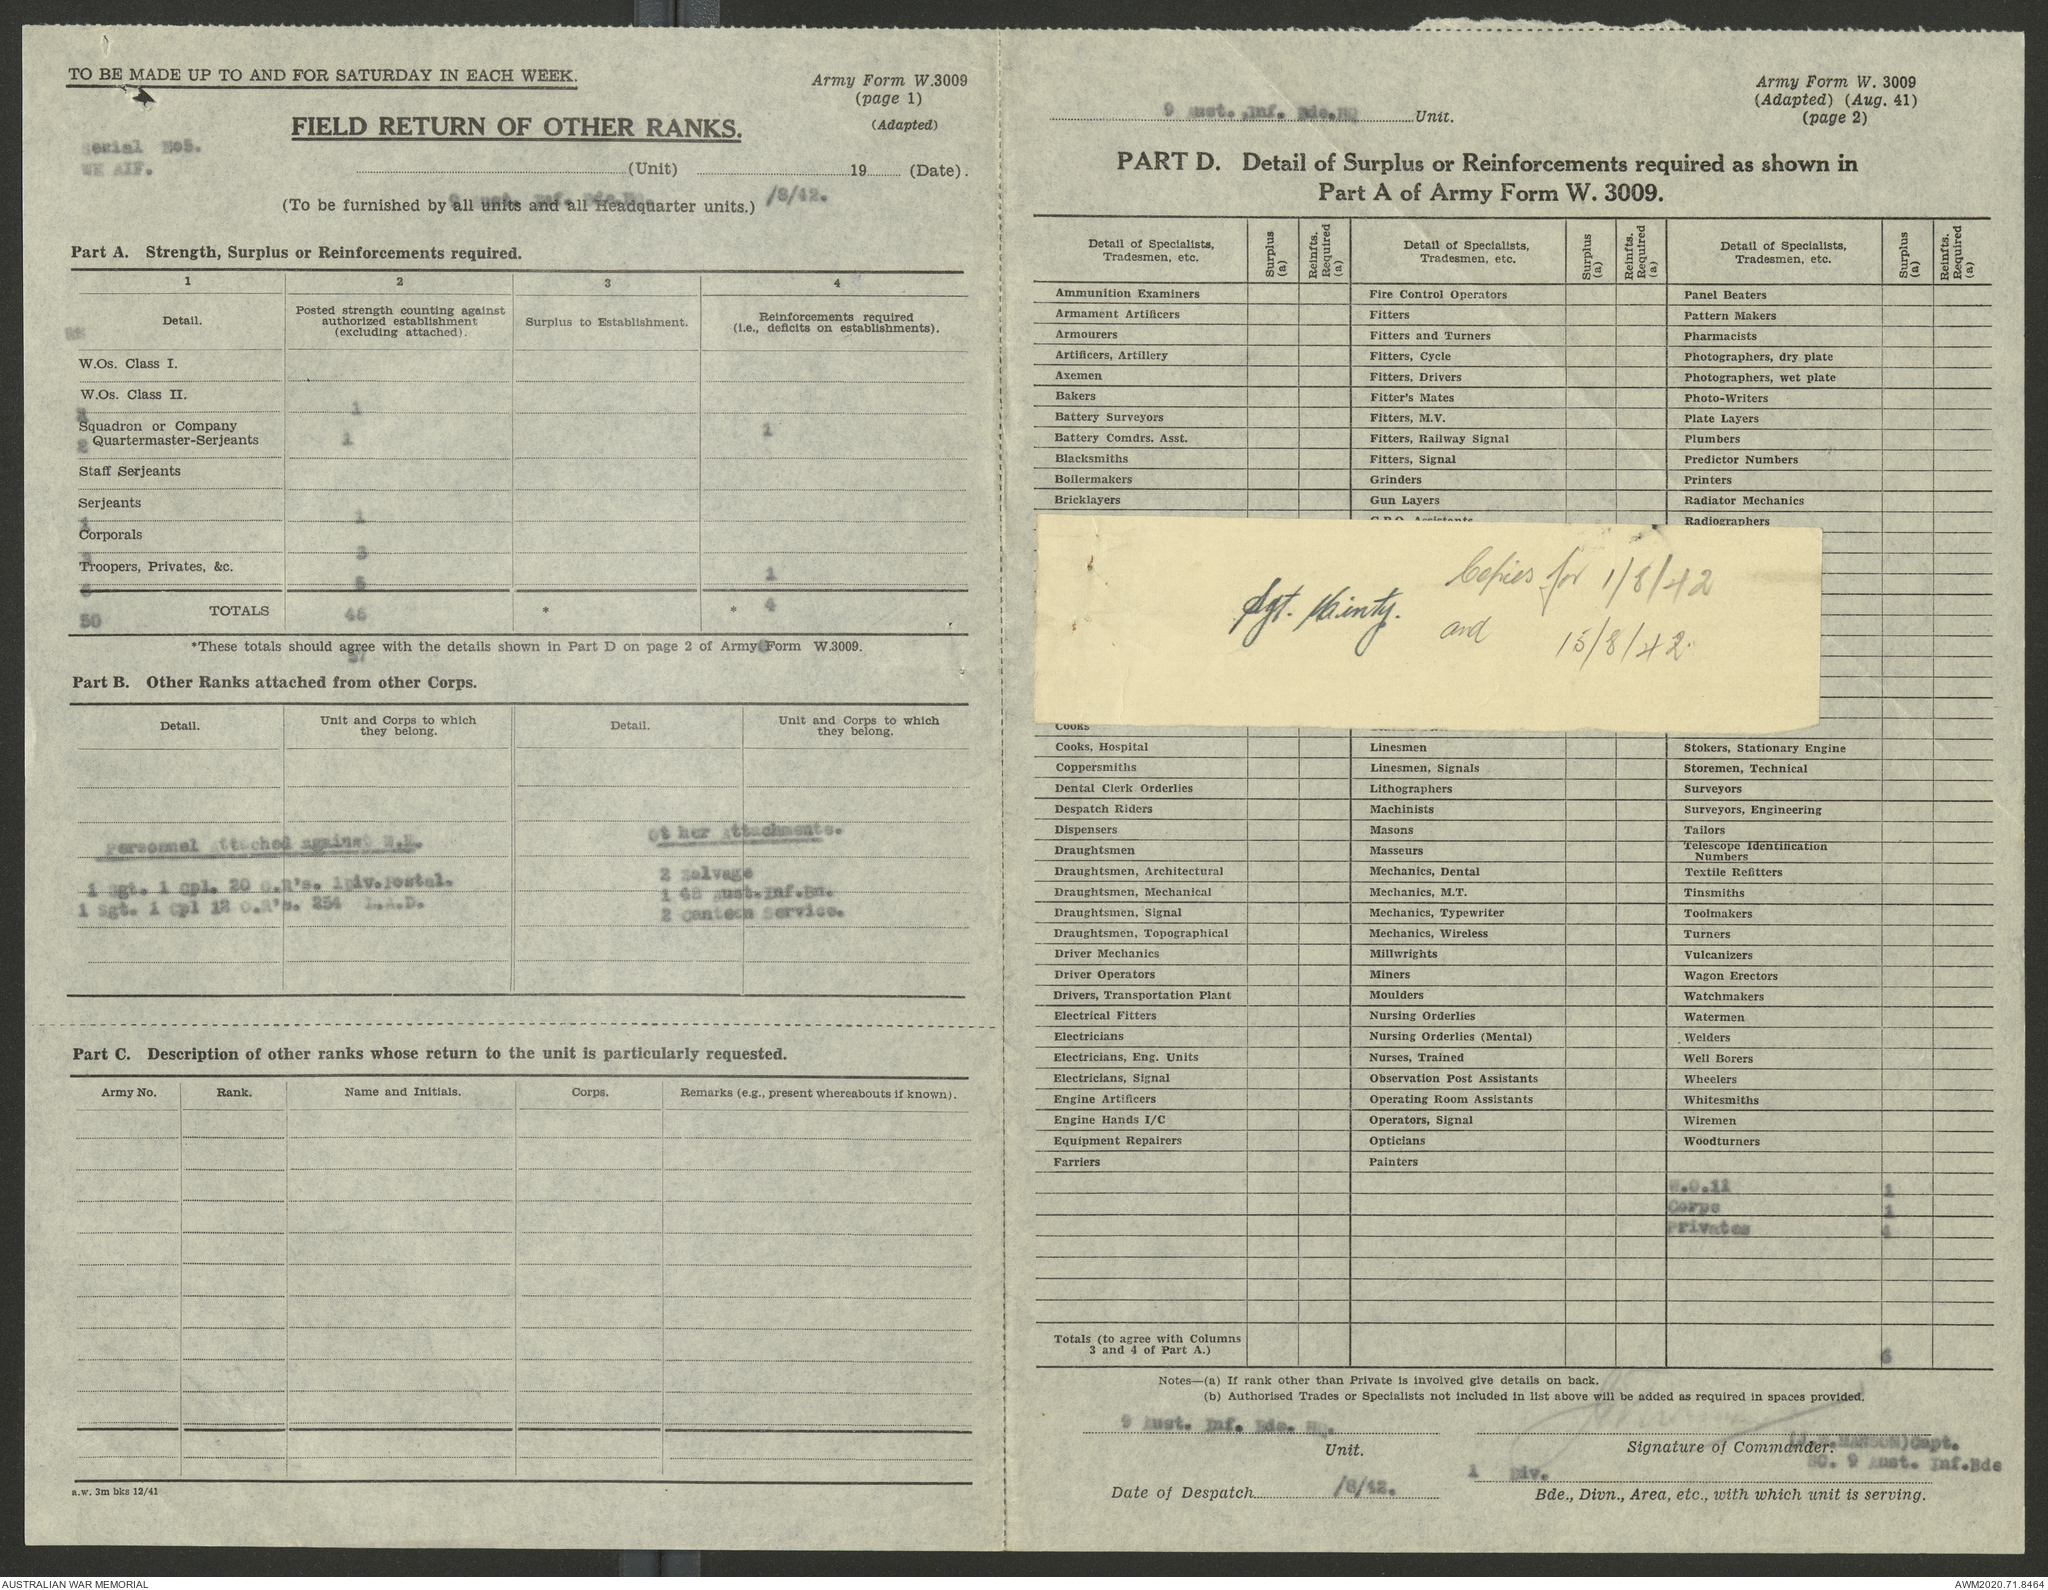 TO BE MADE UP TO AND FOR SATURDAY IN EACH WEEK.
Army Form W.3009
(page 1)
(Adapted)
FIELD RETURN OF OTHER RANKS.
Serial No5.
WE AIF.
(Unit) 19 (Date).
9 Aust. Inf. Bde.HQ. /8/42.
(To be furnished by all units and all Headquarter units.)
Part A. Strength, Surplus or Reinforcements required.
1 2 3 4
Detail. Posted strength counting against authorized establishment (excluding attached). Surplus to Establishment. Reinforcements required (i.e., deficits on establishments).
WE
W.Os. Class I.
W.Os. Class II.
1
Squadron or Company
Quartermaster-Serjeants
2 1 1
Staff Serjeants
Serjeants
1 1
Corporals
3 3
Troopers, Privates, &c.
6 5 1
TOTALS * *
50 46 4
*These totals should agree with the details shown in Part D on page 2 of Army Form W.3009.
57
Part B. Other Ranks attached from other Corps.
Detail. Unit and Corps to which they belong. Detail. Unit and Corps to which they belong.
Personnel Attached against W.E. Other Attachments.
1 Sgt. 1 Cpl. 20 O.R's. 1Div.Postal. 2 Salvage
1 Sgt. 1 Cpl 12 O.R's. 254 L.A.D. 1 48 Aust.Inf.Bn.
2 Canteen Service.
Part C. Description of other ranks whose return to the unit is particularly requested.
Army No. Rank. Name and Initials. Corps. Remarks (e.g., present whereabouts if known).
a.w. 3m bks 12/41
9 Aust. Inf. Bde.HQ Unit.
Army Form W. 3009
(Adapted) (Aug. 41)
(page 2)
PART D. Detail of Surplus or Reinforcements required as shown in
Part A of Army Form W. 3009.
Detail of Specialists, Tradesmen, etc. Surplus (a) Reinfts. Required (a) Detail of Specialists, Tradesmen, etc. Surplus (a) Reinfts. Required (a) Detail of Specialists, Tradesmen, etc. Surplus (a) Reinfts. Required (a)
Ammunition Examiners Fire Control Operators Panel Beaters
Armament Artificers Fitters Pattern Makers
Armourers Fitters and Turners Pharmacists
Artificers, Artillery Fitters, Cycle Photographers, dry plate
Axemen Fitters, Drivers Photographers, wet plate
Bakers Fitter's Mates Photo-Writers
Battery Surveyors Fitters, M.V. Plate Layers
Battery Comdrs. Asst. Fitters, Railway Signal Plumbers
Blacksmiths Fitters, Signal Predictor Numbers
Boilermakers Grinders Printers
Bricklayers Gun Layers Radiator Mechanics
G.P.O. Assistants Radiographers
Copies for 1/8/42
Sgt. Minty.
and 15/8/42.
Cooks
Cooks, Hospital Linesmen Stokers, Stationary Engine
Coppersmiths Linesmen, Signals Storemen, Technical
Dental Clerk Orderlies Lithographers Surveyors
Despatch Riders Machinists Surveyors, Engineering
Dispensers Masons Tailors
Draughtsmen Masseurs Telescope Identification Numbers
Draughtsmen, Architectural Mechanics, Dental Textile Refitters
Draughtsmen, Mechanical Mechanics, M.T. Tinsmiths
Draughtsmen, Signal Mechanics, Typewriter Toolmakers
Draughtsmen, Topographical Mechanics, Wireless Turners
Driver Mechanics Millwrights Vulcanizers
Driver Operators Miners Wagon Erectors
Drivers, Transportation Plant Moulders Watchmakers
Electrical Fitters Nursing Orderlies Watermen
Electricians Nursing Orderlies (Mental) Welders
Electricians, Eng. Units Nurses, Trained Well Borers
Electricians, Signal Observation Post Assistants Wheelers
Engine Artificers Operating Room Assistants Whitesmiths
Engine Hands I/C Operators, Signal Wiremen
Equipment Repairers Opticians Woodturners
Farriers Painters
W.O.11 1
Corps 1
Privates 4
Totals (to agree with Columns
3 and 4 of Part A.) 6
Notes—(a) If rank other than Private is involved give details on back.
(b) Authorised Trades or Specialists not included in list above will be added as required in spaces provided.
9 Aust. Inf. Bde. HQ.
Unit. Signature of Commander.
Capt.
SC. 9 Aust. Inf.Bde
1 Div.
Date of Despatch /8/42.
Bde., Divn., Area, etc., with which unit is serving.
AUSTRALIAN WAR MEMORIAL AWM2020.71.8464